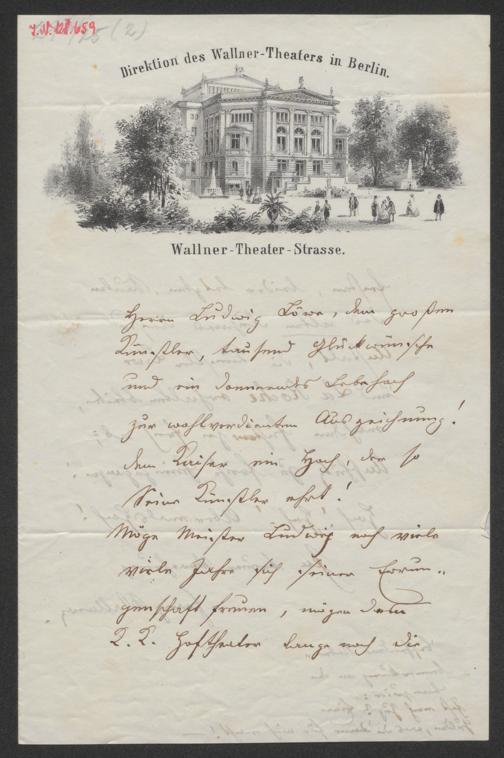 J.N. 121.659
(2)
Direktion des Wallner-Theaters in Berlin.
Wallner-Theater-Strasse.
Herrn Ludwig Löwe, dem großen
Künstler, tausend Glückwünsche
und ein donnerndes Lebehoch
zur wohlverdienten Auszeichnung!
dem Kaiser ein Hoch der so
Seine Künstler ehrt!
Möge Meister Ludwig noch viele
viele Jahre sich seiner Errun-
genschaft freuen, mögen dem
K. K. Hoftheater lange noch die